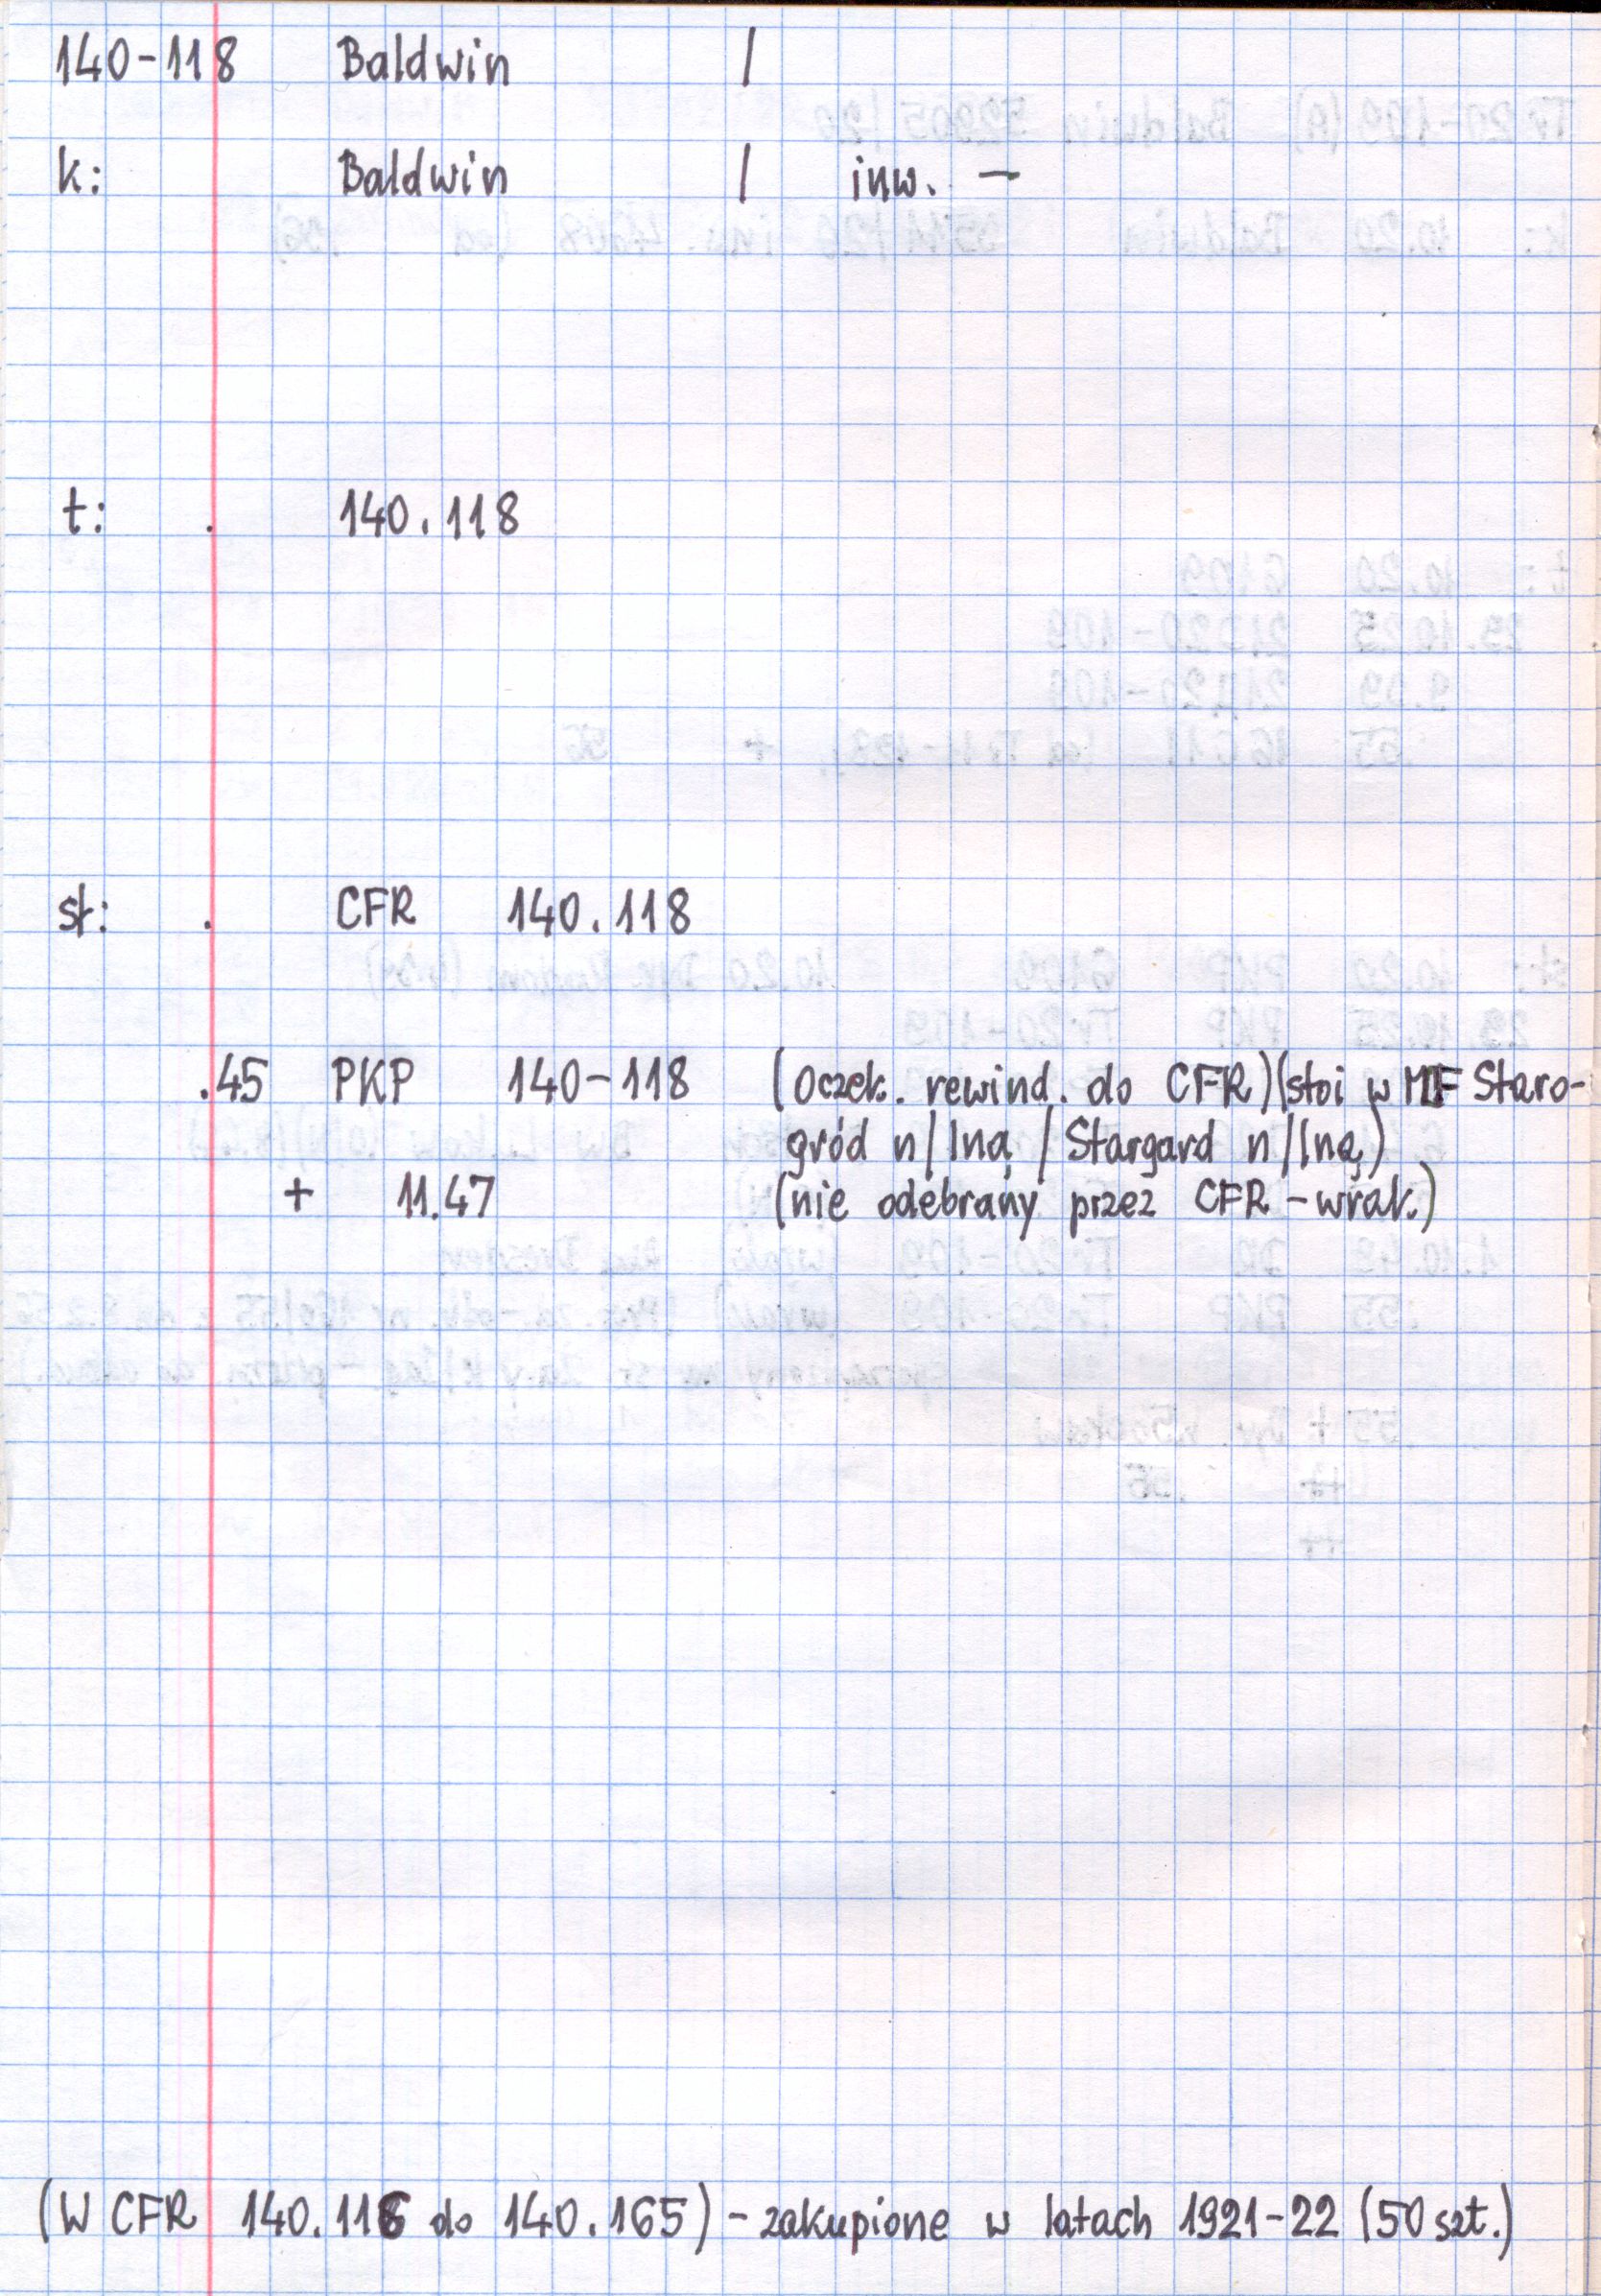 140-118 Baldwin /
k: Baldwin / inw. —
t: . 140.118
sł: . CFR 140.118
.45 PKP 140-118 (Oczek. rewind. do CFR) (stoi w MF Staro-
gród n/Iną / Stargard n/Iną)
+ 11.47 (nie odebrany przez CFR - wrak.)
(W CFR 140.116 do 140.165) - zakupione w latach 1921-22 (50 szt.)